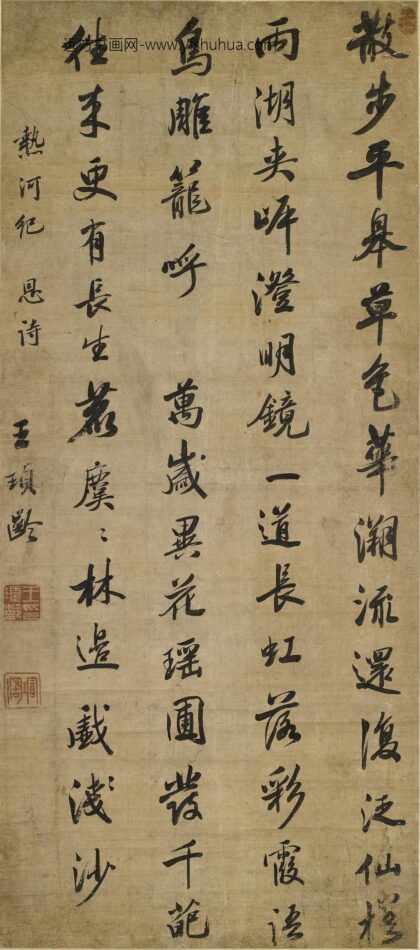 散步平皋草色華溯流還復泛仙槎
兩湖夾岸澄明鏡一道長虹落彩霞語
鳥雕籠呼 萬歲異花瑤圃發千葩
往來更有長生鹿麌〻林邊戲淺沙
熱河紀 恩詩 王頊齡